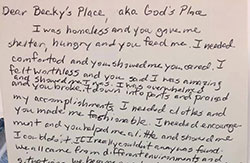 Dear Becky's Place, aka God's Place
I was homeless and you gave me
shelter, hungry and you feed me. I needed
comforted and you showed me you cared. I
felt worthless and you said I was amazing
and showed me I was overwhelmed
and you broke it down into parts and praised
my accomplishments I needed clothes and
you made me fashionable. I needed encourage
ment and you helped me all the and showed me
I could do it. I really couldn't any was found
we all came from different environments and